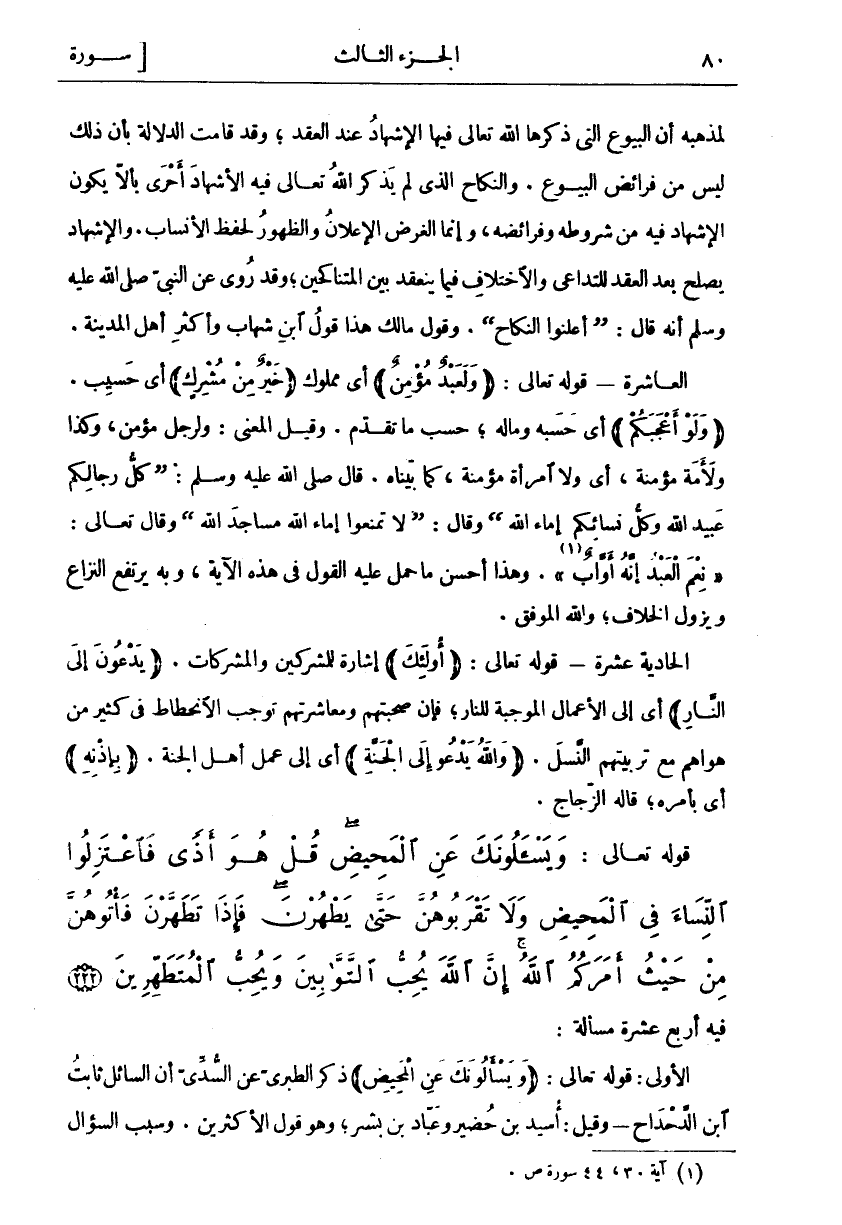 ٨٠ الجـــزء الثـالث [ ســـورة
لمذهبه أن البيوع التى ذكرها الله تعالى فيها الإشهادُ عند العقد ؛ وقد قامت الدلالة بأن ذلك
ليس من فرائض البيـوع . والنكاح الذى لم يَذكر اللهُ تعـالى فيه الأشهادَ أَحْرَى بألاّ يكون
الإشهاد فيه من شروطه وفرائضه، وإنما الغرض الإعلانُ والظهورُ لحفظ الأنساب. والإشهاد
يصلح بعد العقد للتداعى والاختلافِ فيما ينعقد بين المتناكحين؛ وقد رُوى عن النبىّ صلى الله عليه
وسلم أنه قال : ”أعلنوا النكاح“ . وقول مالك هذا قولُ ٱبنِ شهاب وأكثرِ أهل المدينة .
العـاشرة – قوله تعالى : ﴿ وَلَعَبْدٌ مُؤْمِنٌ ﴾ أى مملوك ﴿خَيْرٌ مِنْ مُشْرِكٍ﴾ أى حَسيب .
﴿ وَلَوْ أَعْجَبَكُمْ ﴾ أى حَسَبه وماله ؛ حسب ما تقـدّم . وقيـل المعنى : ولرجل مؤمن، وكذا
ولَأَمَة مؤمنة ، أى ولا مرأة مؤمنة ، كما بيّناه . قال صلى الله عليه وسـلم : ”كلُّ رجالِكم
عَبيد الله وكلُّ نسائكم إماء الله “ وقال : ” لا تمنعوا إماء الله مساجدَ الله “ وقال تعـالى :
« نِعْمَ الْعَبْدُ إِنَّهُ أَوَّابٌ (١) » . وهذا أحسن ما حمل عليه القول فى هذه الآية ، وبه يرتفع النزاع
ويزول الخلاف؛ والله الموفق .
الحادية عشرة – قوله تعالى : ﴿ أُولَئِكَ ﴾ إشارة للمشركين والمشركات . ﴿ يَدْعُونَ إِلَى
النَّـارِ﴾ أى إلى الأعمال الموجبة للنار؛ فإن صحبتهم ومعاشرتهم توجب الآنحطاط فى كثير من
هواهم مع تربيتهم النَّسلَ . ﴿ وَاللهُ يَدْعُو إِلَى الْجَنَّةِ ﴾ أى إلى عمل أهـل الجنة . ﴿ بِإِذْنِهِ ﴾
أى بأمره؛ قاله الزّجاج .
قوله تعـالى : وَيَسْـَٔلُونَكَ عَنِ ٱلْمَحِيضِۖ قُلْ هُـوَ أَذًى فَٱعْتَزِلُوا
ٱلنِّسَآءَ فِى ٱلْمَحِيضِ وَلَا تَقْرَبُوهُنَّ حَتَّىٰ يَطْهُرْنَۖ فَإِذَا تَطَهَّرْنَ فَأْتُوهُنَّ
مِنْ حَيْثُ أَمَرَكُمُ ٱللَّهُۚ إِنَّ ٱللَّهَ يُحِبُّ ٱلتَّوَّٰبِينَ وَيُحِبُّ ٱلْمُتَطَهِّرِينَ ﴿٢٢٢﴾
فيه أربع عشرة مسألة :
الأولى : قوله تعالى : ﴿وَيَسْأَلُونَكَ عَنِ الْمَحِيضِ﴾ ذكر الطبرىّ عن السُّدِّىّ أن السائل ثابتُ
ٱبن الدَّحْدَاح – وقيل : أُسيد بن حُضير وعَبّاد بن بشر؛ وهو قول الأكثرين . وسبب السؤال
(١) آية ٣٠، ٤٤ سورة ص .